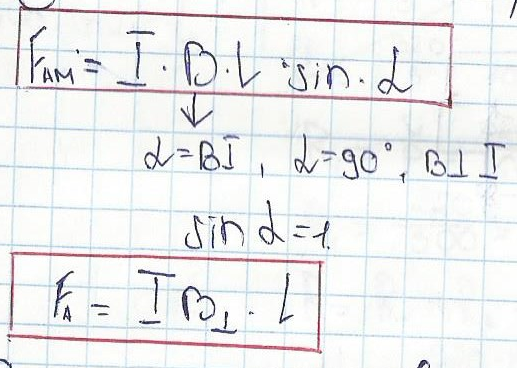 F_AM = I · B · L · sin · α
↓
α = BI, α = 90°, B ⊥ I
sin α = 1.
F_A = I B_⊥ · L